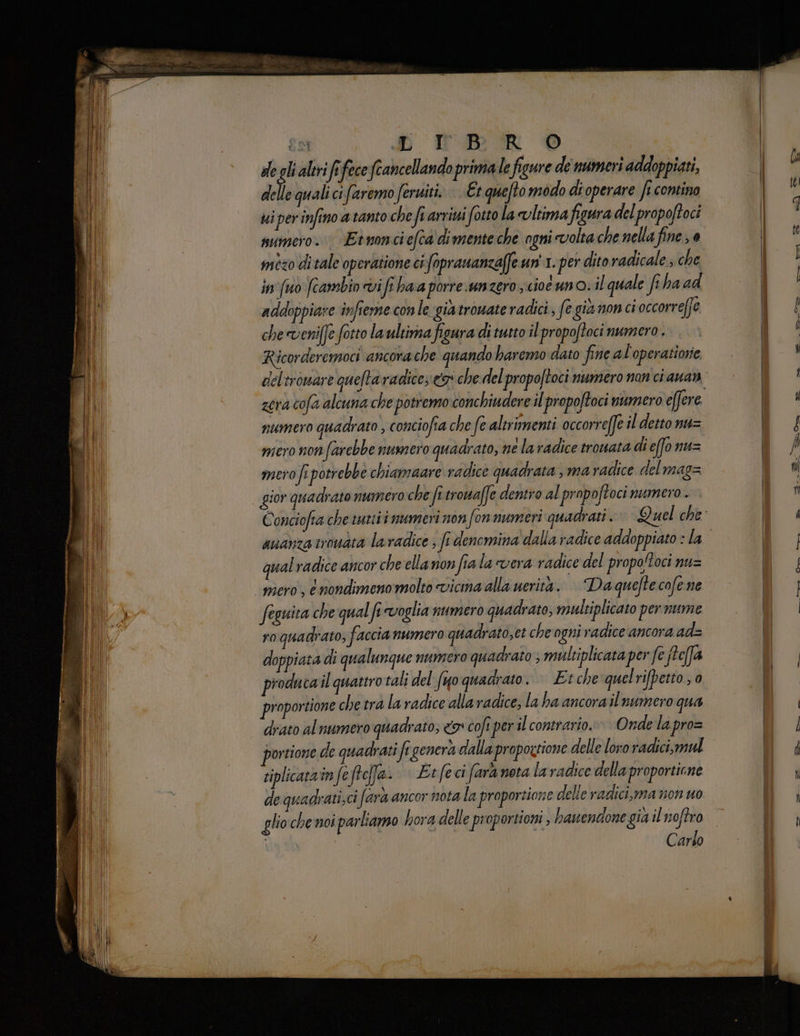 L I B R O
de gli altri si fece scancellando prima le figure de numeri addoppiati,
delle quali ci saremo seruiti. Et questo modo di operare si contino
ui per infino a tanto che si arriui sotto la vltima figura del propostoci
numero. Et non ci esca di mente che ogni volta che nella fine, o
mezo di tale operatione ci soprauanzasse un' 1. per dito radicale, che
in suo scambio vi si ha a porre un zero, cioè un 0. il quale si ha ad
addoppiare insieme con le gia trouate radici, se gia non ci occorresse
che venisse sotto la ultima figura di tutto il propostoci numero.
Ricorderemoci ancora che quando haremo dato fine al'operatione,
del trouare questa radice, & che del propostoci numero non ci auan
zera cosa alcuna che potremo conchiudere il propostoci numero essere
numero quadrato, conciosia che se altrimenti occorresse il detto nu=
mero non sarebbe numero quadrato, nè la radice trouata di esso nu=
mero si potrebbe chiamaare radice quadrata, ma radice del mag=
gior quadrato numero che si trouasse dentro al propostoci numero.
Conciosia che tutti i numeri non son numeri quadrati. Quel che
auanza trouata la radice, si denomina dalla radice addoppiato: la
qual radice ancor che ella non sia la vera radice del propostoci nu=
mero, è nondimeno molto vicina alla uerità. Da queste cose ne
seguita che qual si voglia numero quadrato, multiplicato per nume
ro quadrato, faccia numero quadrato, et che ogni radice ancora ad=
doppiata di qualunque numero quadrato, multiplicata per se stessa
produca il quattro tali del suo quadrato. Et che quel rispetto, o
proportione che trà la radice alla radice, la ha ancora il numero qua
drato al numero quadrato, & cosi per il contrario. Onde la pro=
portione de quadrati si genera dalla proportione delle loro radici, mul
tiplicata in se stessa. Et se ci sarà nota la radice della proportione
de quadrati, ci sarà ancor nota la proportione delle radici, ma non uo
glio che noi parliamo hora delle proportioni, hauendone già il nostro
Carlo